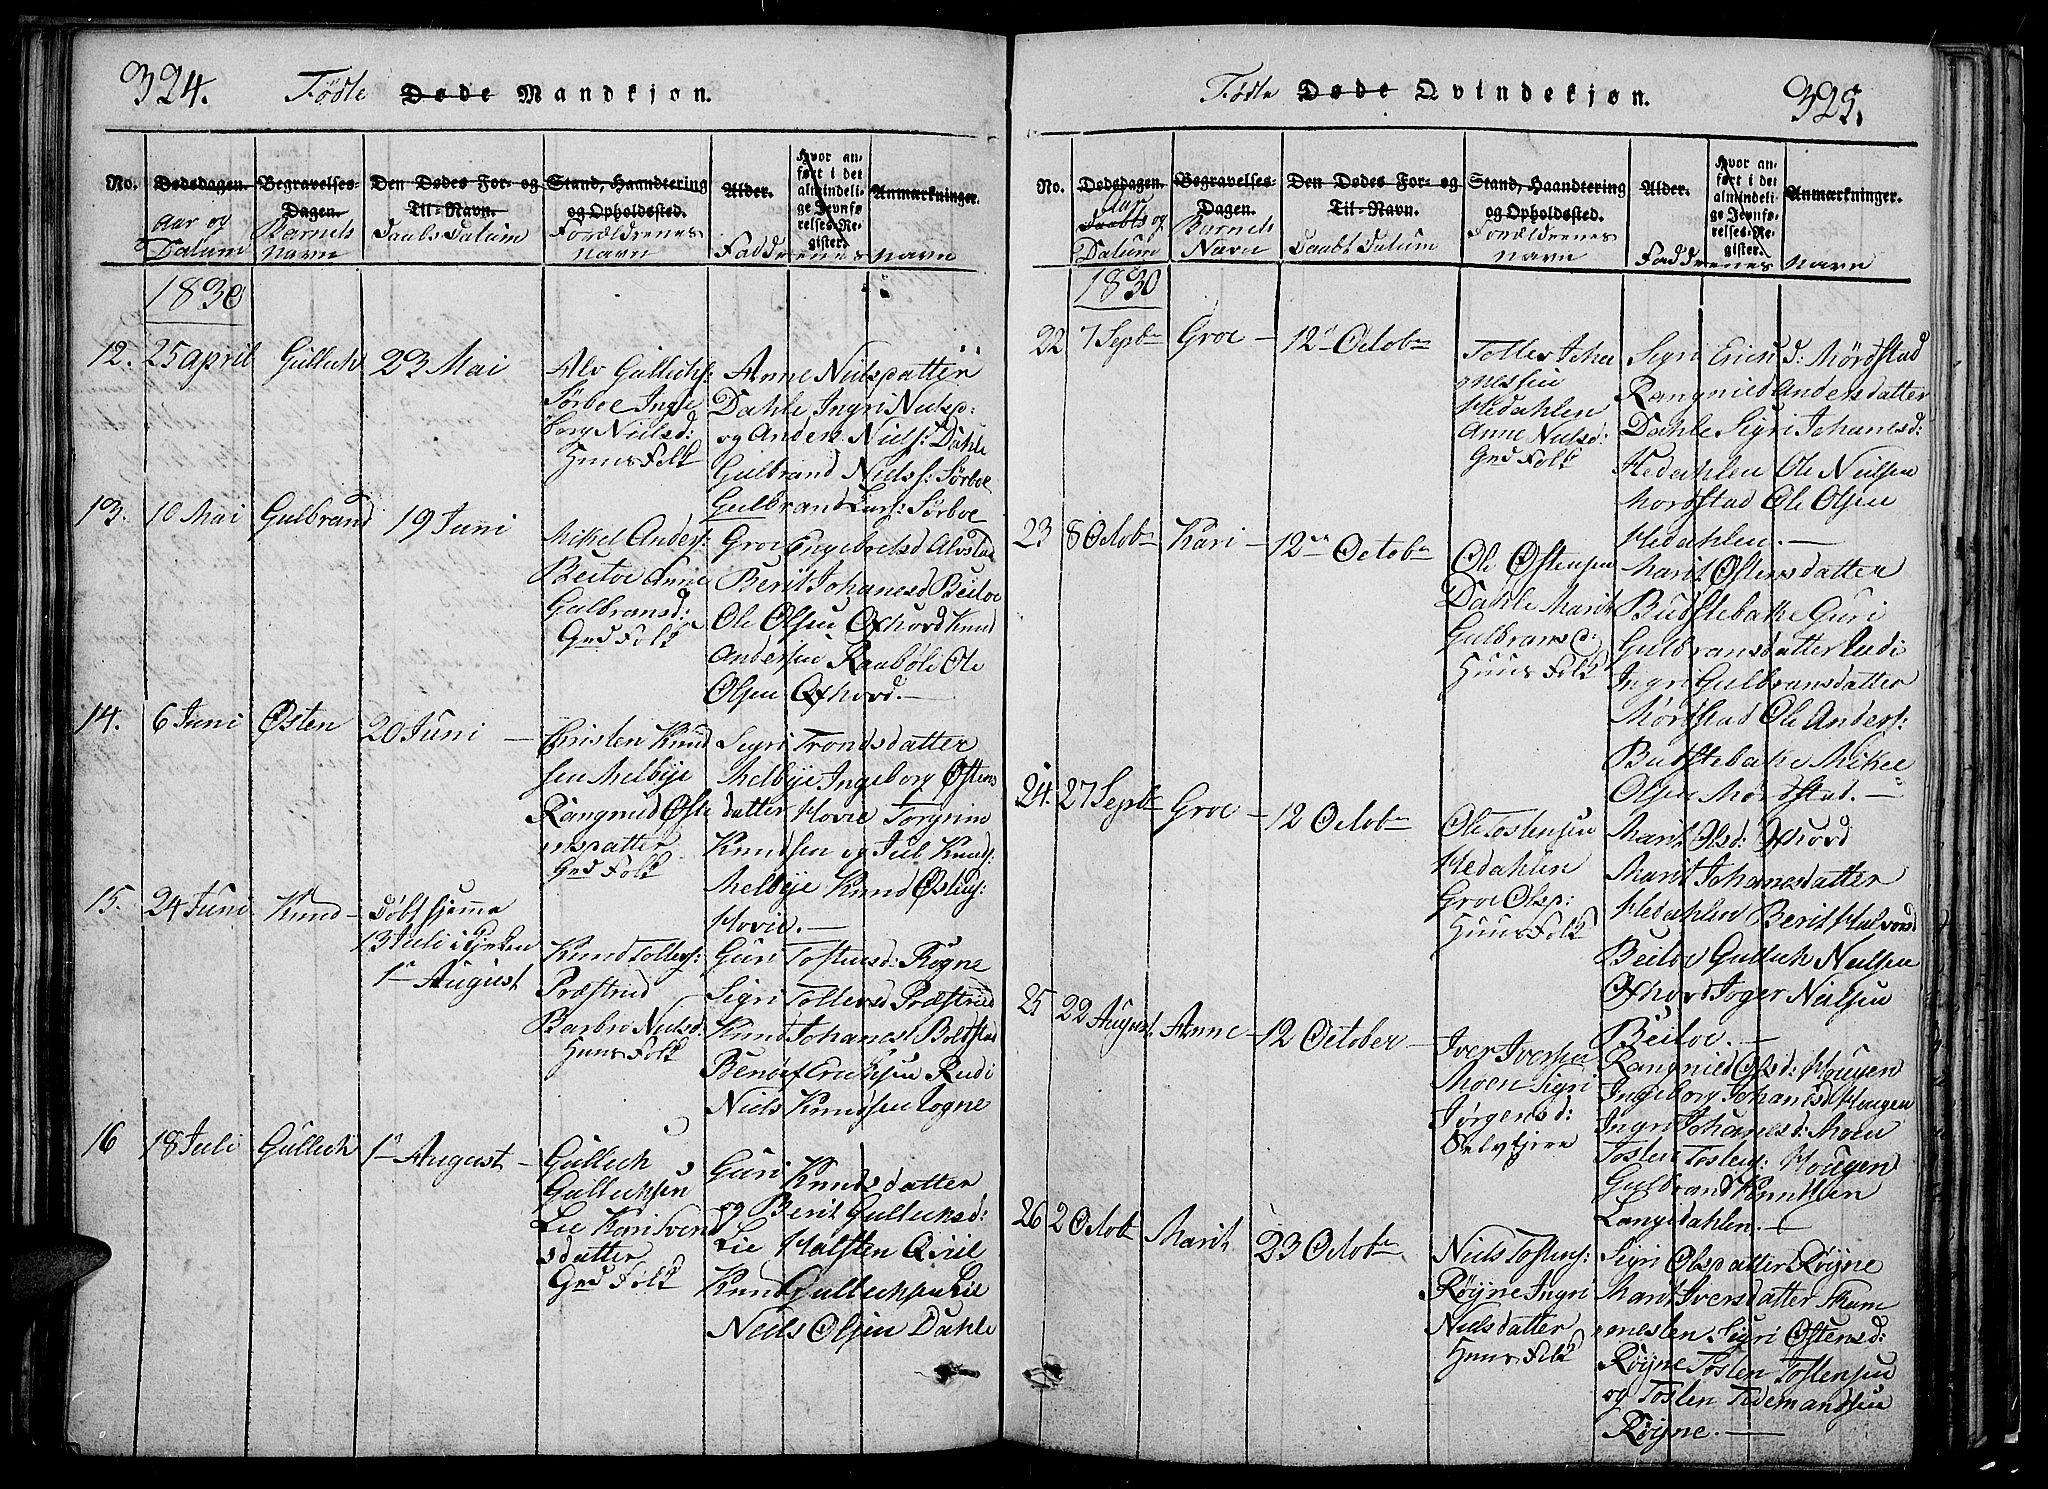 324.
Fødte Døde Mandkjøn.
No.
Dødsdagen.
Aar og
Datum
Begravelses-
Dagen.
Barnets
Navn
Den Dødes For- og
Til-Navn.
Daabs Datum
Stand, Haandtering
og Opholdssted.
Forældrenes
Navn
Alder.
Hvor an-
ført i det
almindeli-
ge Jevnfø-
relses-Re-
gister.
Anmærkninger.
Faddrenes navn
1830
12. 25 april Gullech 23 Mai
Alv Gullichs:
Sørboe Inge
borg Nielsd:
Huus Folk
Anne Nielsdatter
Dahle Ingri Nielsd:
og Anders Niels: Dahle
Gulbrand Niels: Sørboe
Gulbrand Lars: Sørboe
13. 10 Mai Gulbrand 19 Juni
Mikel Anders:
Beitoe Anne
Gulbransd:
Grd Folk
Groe Engebretsd Alvstad
Berit Johanesd Beitoe
Ole Olsen Oxhovd Knud
Andersen Raabøle Ole
Olsen Oxhovd. —
14. 6 Juni Østen 20 Juni —
Cristen Knud
sen Melbye
Rangnied Øste
nsdatter
Grd Folk
Sigri Trondsdatter
Melbye Ingeborg Østens
datter Hovie Torgrim
Knudsen og Juel Knuds:
Melbye Knud Østens:
Hovie. —
15. 24 Juni Knud — Døbt hjemme
13 Juli i Kirken
1te August
Knud Tolless:
Præstrud
Barbro Nielsd:
Huus Folk
Guri Tostensd: Røgne
Sigri Tollevsd Præstrud
Knud Johanes Bolstad
Benøf Eriksen Rudi
Niels Knudsen Rogne
16 18 Juli Gullech 1te August —
Gullech
Gullechsen
Lie Kari Iver
sdatter
Grd Folk
Guri Knudsdatter
og Berit Gullechsd:
Lie Halsten Qviel
Knud Gullechsen Lie
Niels Olsen Dahle
325.
Fødte Døde Qvindekjøn.
No.
Dødsdagen.
Aar
Daabs og
Datum
Begravelses-
Dagen.
Barnets
Navn
Den Dødes For- og
Til-Navn.
Daabt Datum
Stand, Haandtering
og Opholdssted.
Forældrenes
navn
Alder.
Hvor an-
ført i det
almindeli-
ge Jevnfø-
relses-Re-
gister.
Anmærkninger.
Faddrenes navn
1830
22 7 Septbr Groe — 12te Octobr
Tollev Joha
gnesen
Hedahlen
Anne Nielsd:
Grd Folk
Sigri Ericsd: Mørdstad
Rangnied Andersdatter
Dahle Sigri Johanesd:
Hedahlen Ole Nielsen
Mordstad Ole Olsen
Hedahlen. —
23 8 Octobr Kari — 12te Octobr
Ole Østensen
Dahle Marit
Gulbransd:
Huus Folk
Marit Østensdatter
Budstebakke Guri
Gulbransdatter Rudi
Ingri Gulbransdatter
Mørdstad Ole Anders:
Budstebake Mikel
Olsen Mørdstad. —
24. 27 Septbr Groe — 12 Octobr
Ole Tostensen
Hedahlen
Groe Olsd:
Huus Folk
Marit Olsd: Oxhovd
Marit Johanesdatter
Hedahlen Berit Halvorsd
Beitoe Gullich Nielsen
Oxhovd Joger Nielsen
Beitoe. —
25 22 August Anne — 12 October —
Iver Iversen
Moen Sigri
Jørgensd:
Selvejere
Rangnied Olsd: Hougen
Ingeborg Johanesd Hougen
Ingri Johanesd: Moen
Tosten Tostens: Hougen
Gulbrand Knudsen
Langedahlen. —
26 2 Octob Marit 23 Octobr
Niels Tostens:
Røyne Ingri
Nielsdatter
Huus Folk
Sigri Olsdatter Røyne
Marit Iversdatter
Sigri Østensd:
Røyne Tosten Tostensen
og Tosten Tidemandsen
Røyne. —